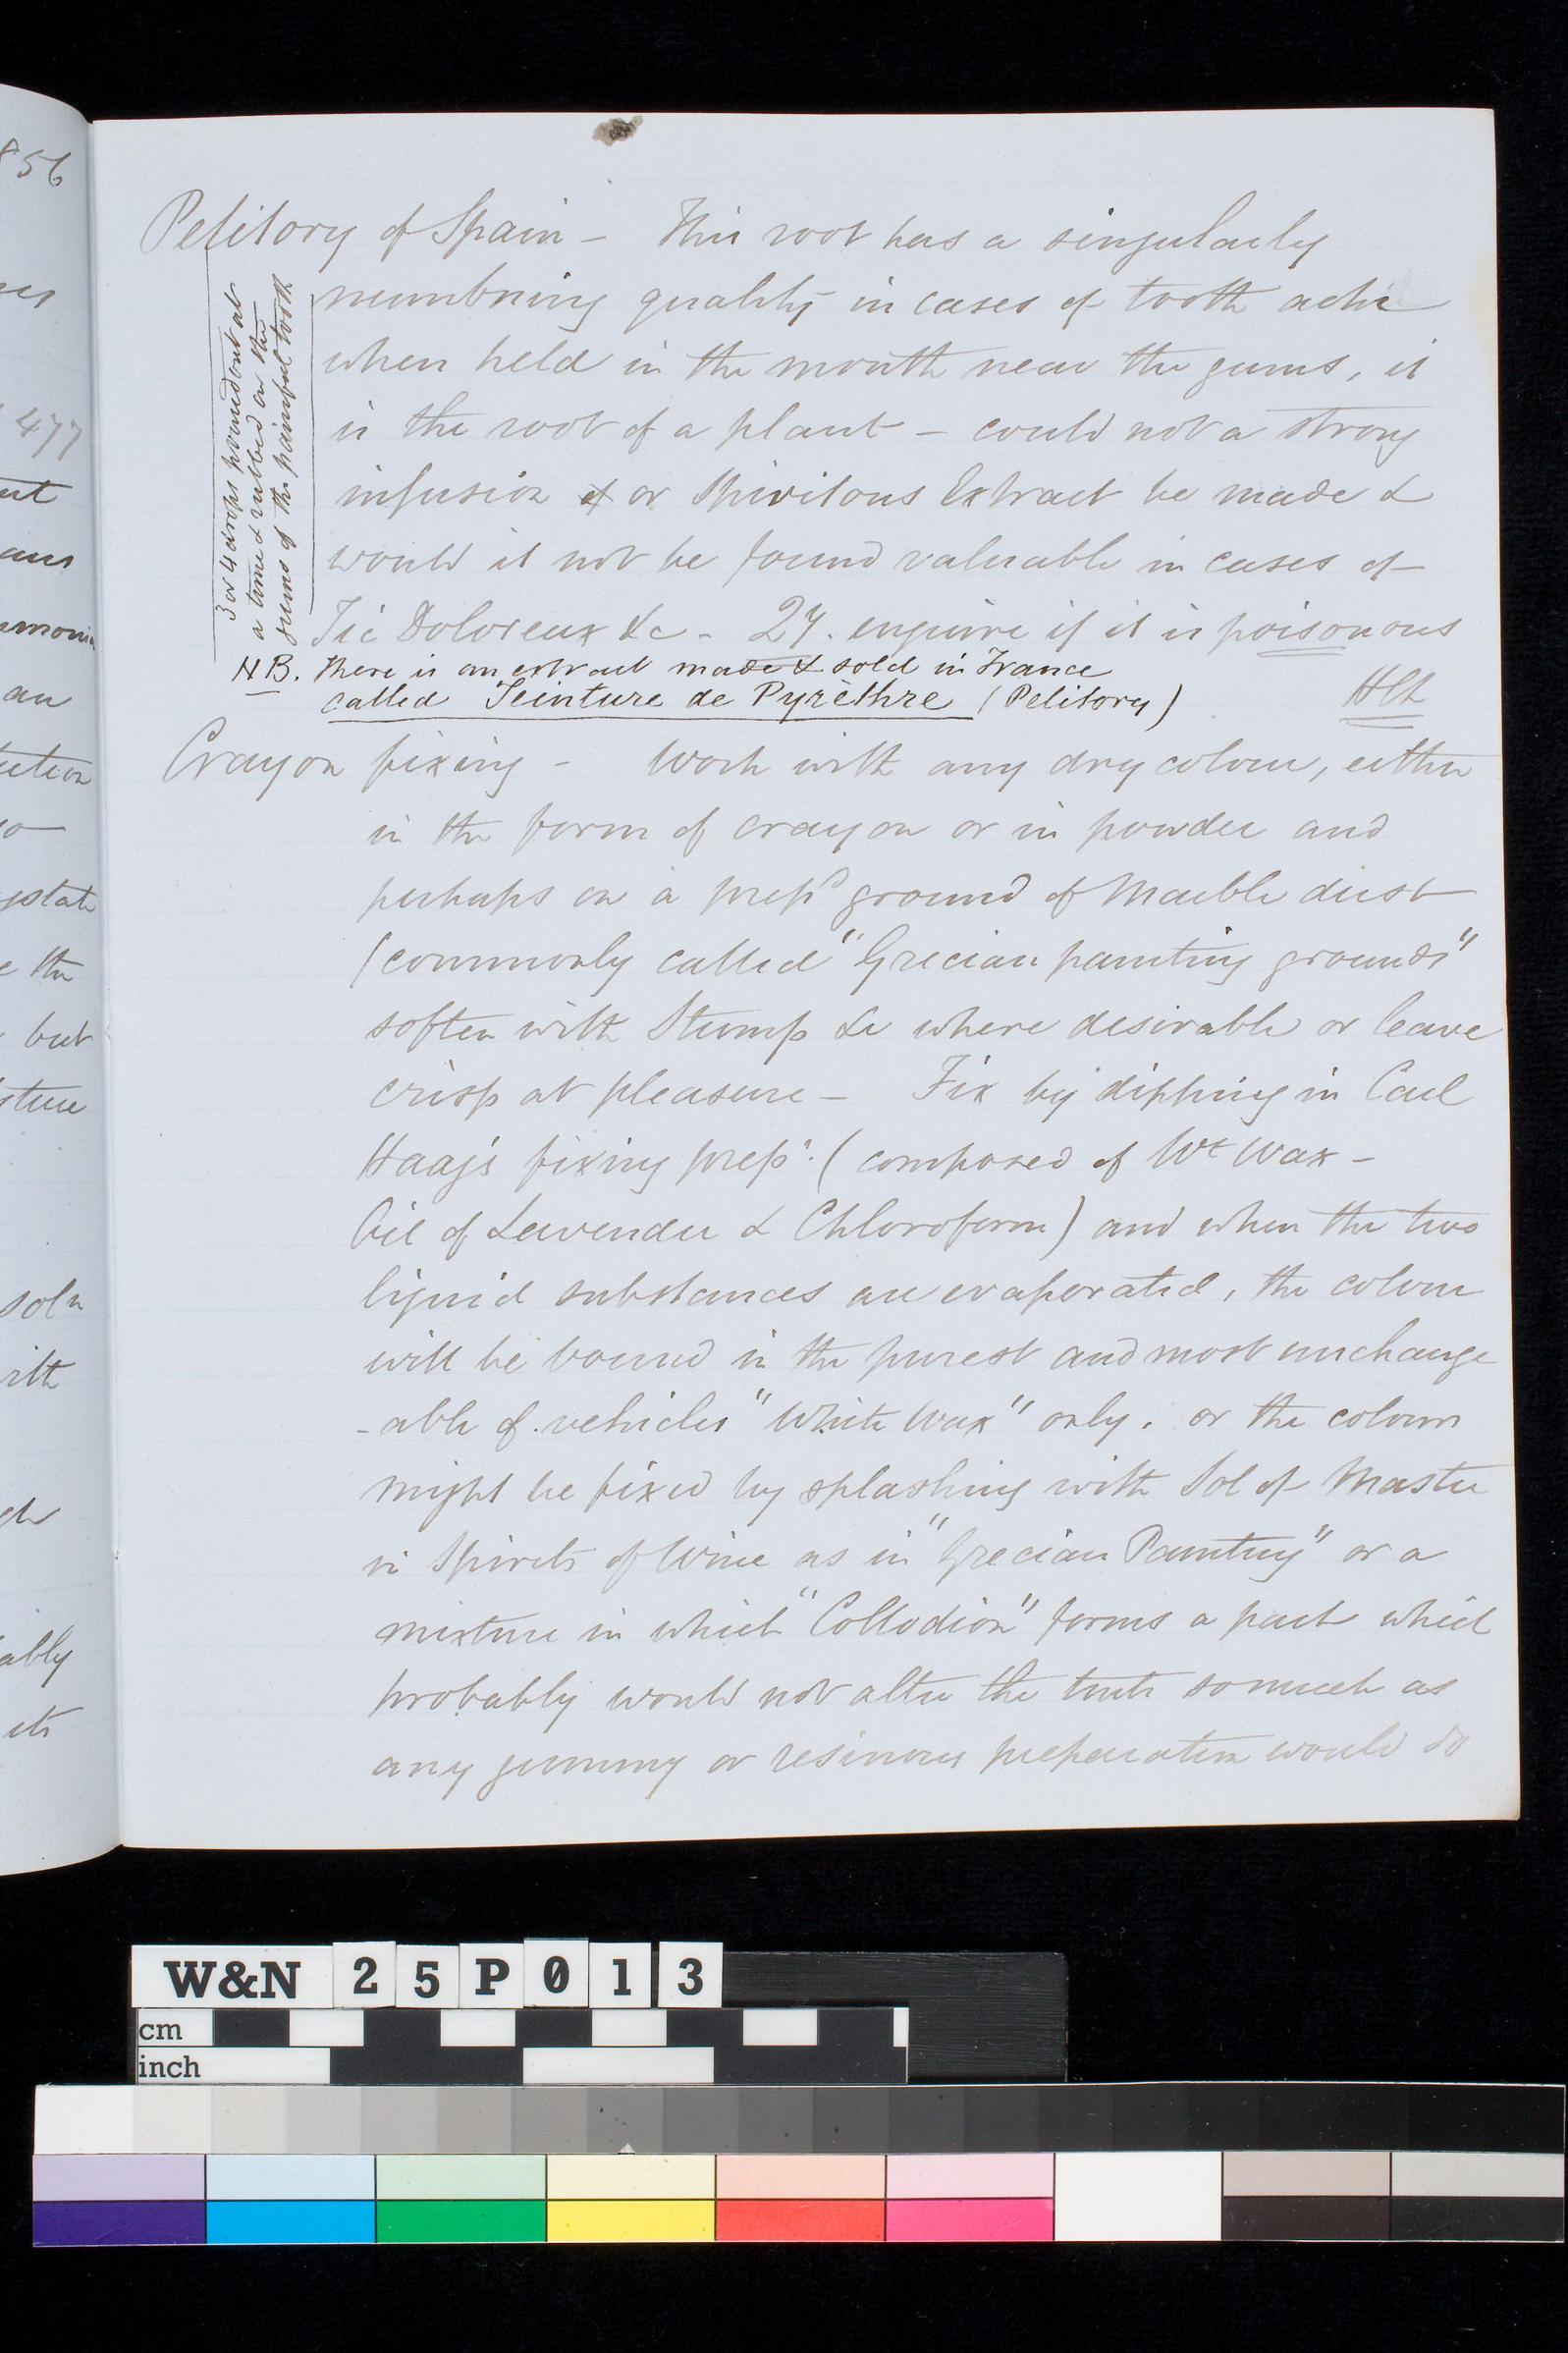 856
477
ut
ans
an
state
e the
but
soln
ith
ably
its
Pelitory of Spain – This root has a singularly
numbning quality in cases of tooth ache
when held in the mouth near the gums, it
is the root of a plant – could not a strong
infusion of or Spiritous Extract be made &
would it not be found valuable in cases of
Tic Doloreux &c - Qy. enquire if it is poisonous
3 or 4 drops poured out at
a time & rubbed on the
gums of the painful tooth
NB. there is an extract made & sold in France
called Teinture de Pyrèthre (Pelitory)
HCh
Crayon fixing - Work with any dry colour, either
in the form of crayon or in powder and
perhaps on a prepd ground of Marble dust
(commonly called "Grecian painting grounds"
soften with Stump &c where desirable or leave
crisp at pleasure – Fix by dipping in Carl
Haag's fixing prepn. (composed of Wt Wax –
Oil of Lavender & Chloroform) and when the two
liquid substances are evaporated, the colour
will be bound in the purest and most unchange
-able of vehicles "White Wax" only. or the colours
might be fixed by splashing with Sol of Mastic
in Spirits of Wine as in "Grecian Painting" or a
mixture in which "Collodion" forms a part which
probably would not alter the tints so much as
any gummy or resinous preparation would do
W&N 25P013
cm
inch